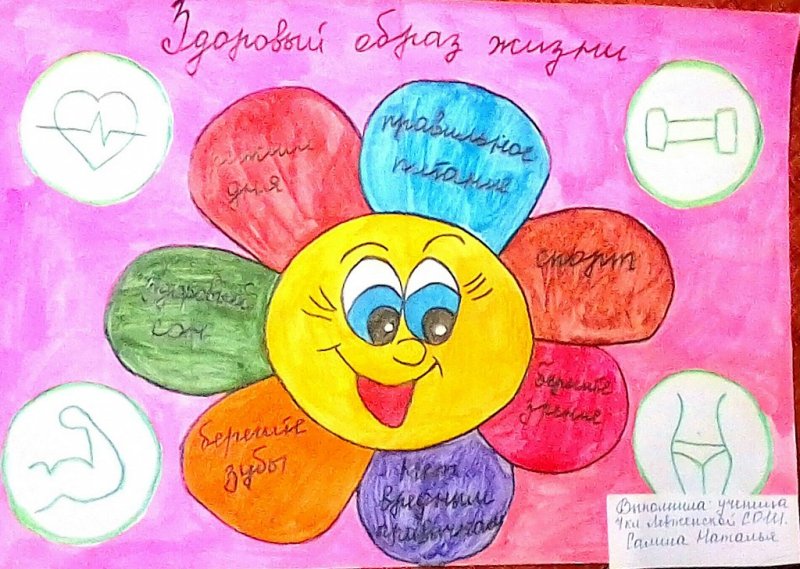 Здоровый образ жизни
режим
дня
правильное
питание
спорт
Здоровый
сон
берегите
зрение
берегите
зубы
Нет
вредным
привычкам
Выполнила: ученица
СОШ.
Салина Наталья